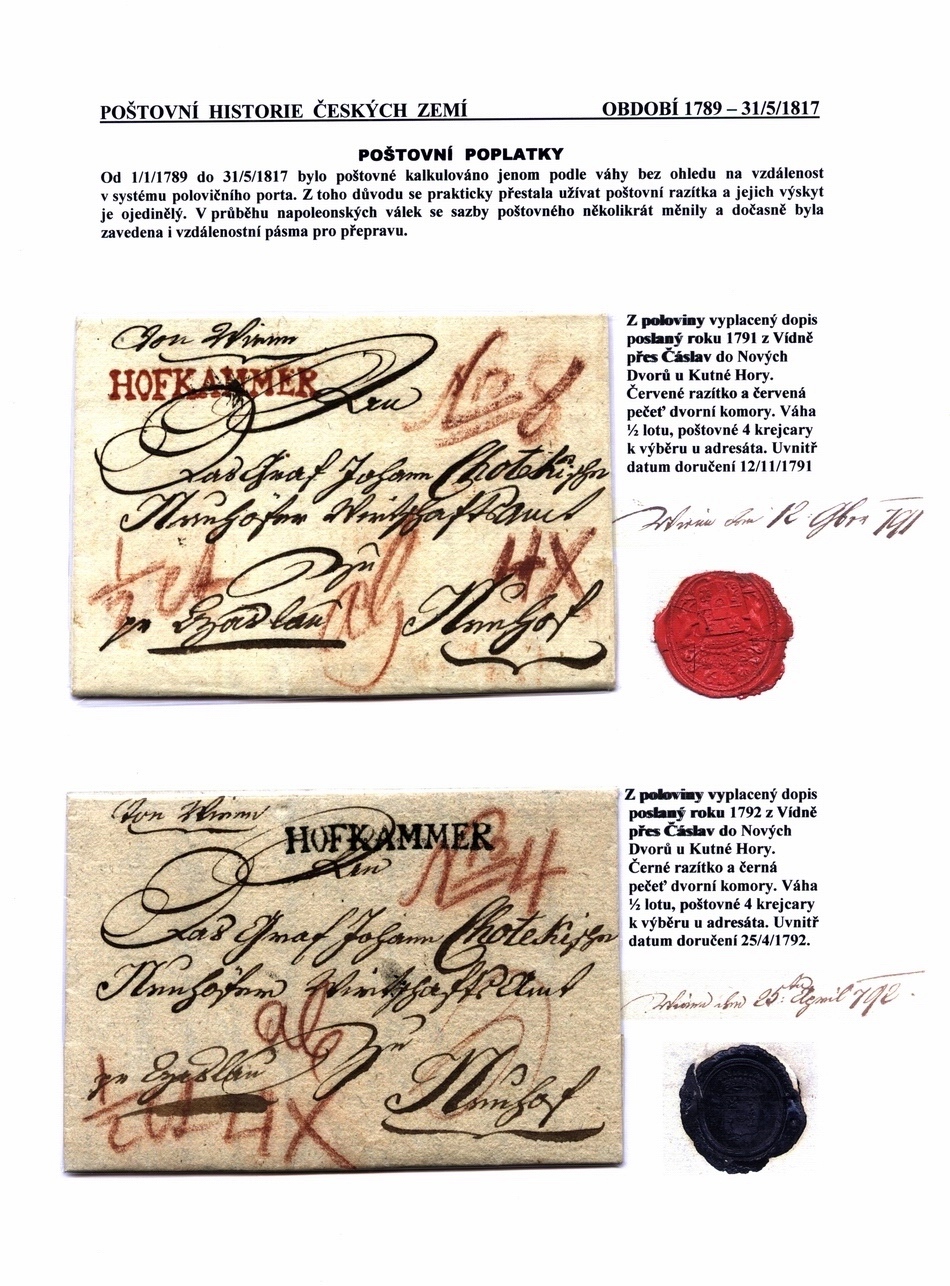 POŠTOVNÍ HISTORIE ČESKÝCH ZEMÍ OBDOBÍ 1789 – 31/5/1817
POŠTOVNÍ POPLATKY
Od 1/1/1789 do 31/5/1817 bylo poštovné kalkulováno jenom podle váhy bez ohledu na vzdálenost
v systému polovičního porta. Z toho důvodu se prakticky přestala užívat poštovní razítka a jejich výskyt
je ojedinělý. V průběhu napoleonských válek se sazby poštovného několikrát měnily a dočasně byla
zavedena i vzdálenostní pásma pro přepravu.
Von Wienn
HOFKAMMER
No 8
Das Graf Johann Chotekische
Neuhöfer Wirtschafts Amt
Zu
4X
pr Czaslau
Neuhof
Z poloviny vyplacený dopis
poslaný roku 1791 z Vídně
přes Čáslav do Nových
Dvorů u Kutné Hory.
Červené razítko a červená
pečeť dvorní komory. Váha
½ lotu, poštovné 4 krejcary
k výběru u adresáta. Uvnitř
datum doručení 12/11/1791
Wienn den 12 9ber 791
Von Wienn
HOFKAMMER
No 4
Das Graf Johann Chotekische
Neuhöfer Wirtschafts Amt
Zu
pr Czaslau
Neuhof
4X
Z poloviny vyplacený dopis
poslaný roku 1792 z Vídně
přes Čáslav do Nových
Dvorů u Kutné Hory.
Černé razítko a černá
pečeť dvorní komory. Váha
½ lotu, poštovné 4 krejcary
k výběru u adresáta. Uvnitř
datum doručení 25/4/1792.
Wienn den 25: April 792.